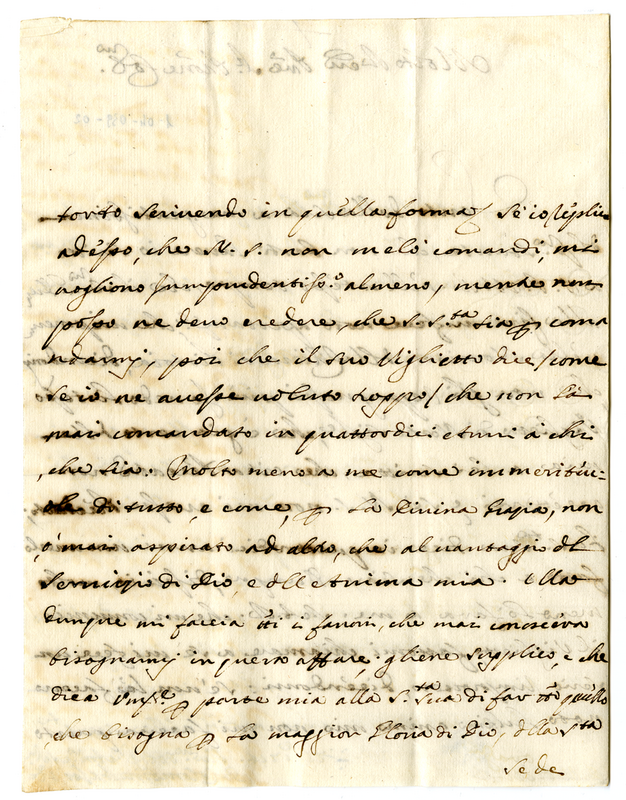 torto scrivendo in quella forma se io
adesso, che N. S. non me lo comandi, mi
vogliono almeno, mentre non
posso ne devo credere, che S. S.tà sia coma
ndarmj, poi che il suo Viglietto dice / come
se io ne avesse voluto / che non hà
mai comandato in quattordici à chi
che sia. Molto meno a me come immerite-
di tutto, e come, La Divina Grazia, non
ò mai aspirato ad altro, che al vantaggio dl
Servizio di Dio, e dll' Anima mia. Ella
dunque mi faccia tti i favori, che mai conoscerà
bisognarmj in questo affare, gliene supplico, e che
dica parte mia alla S.tà Sua di far tto quello
che bisogna La maggior Gloria di Dio, della Sta
Sede